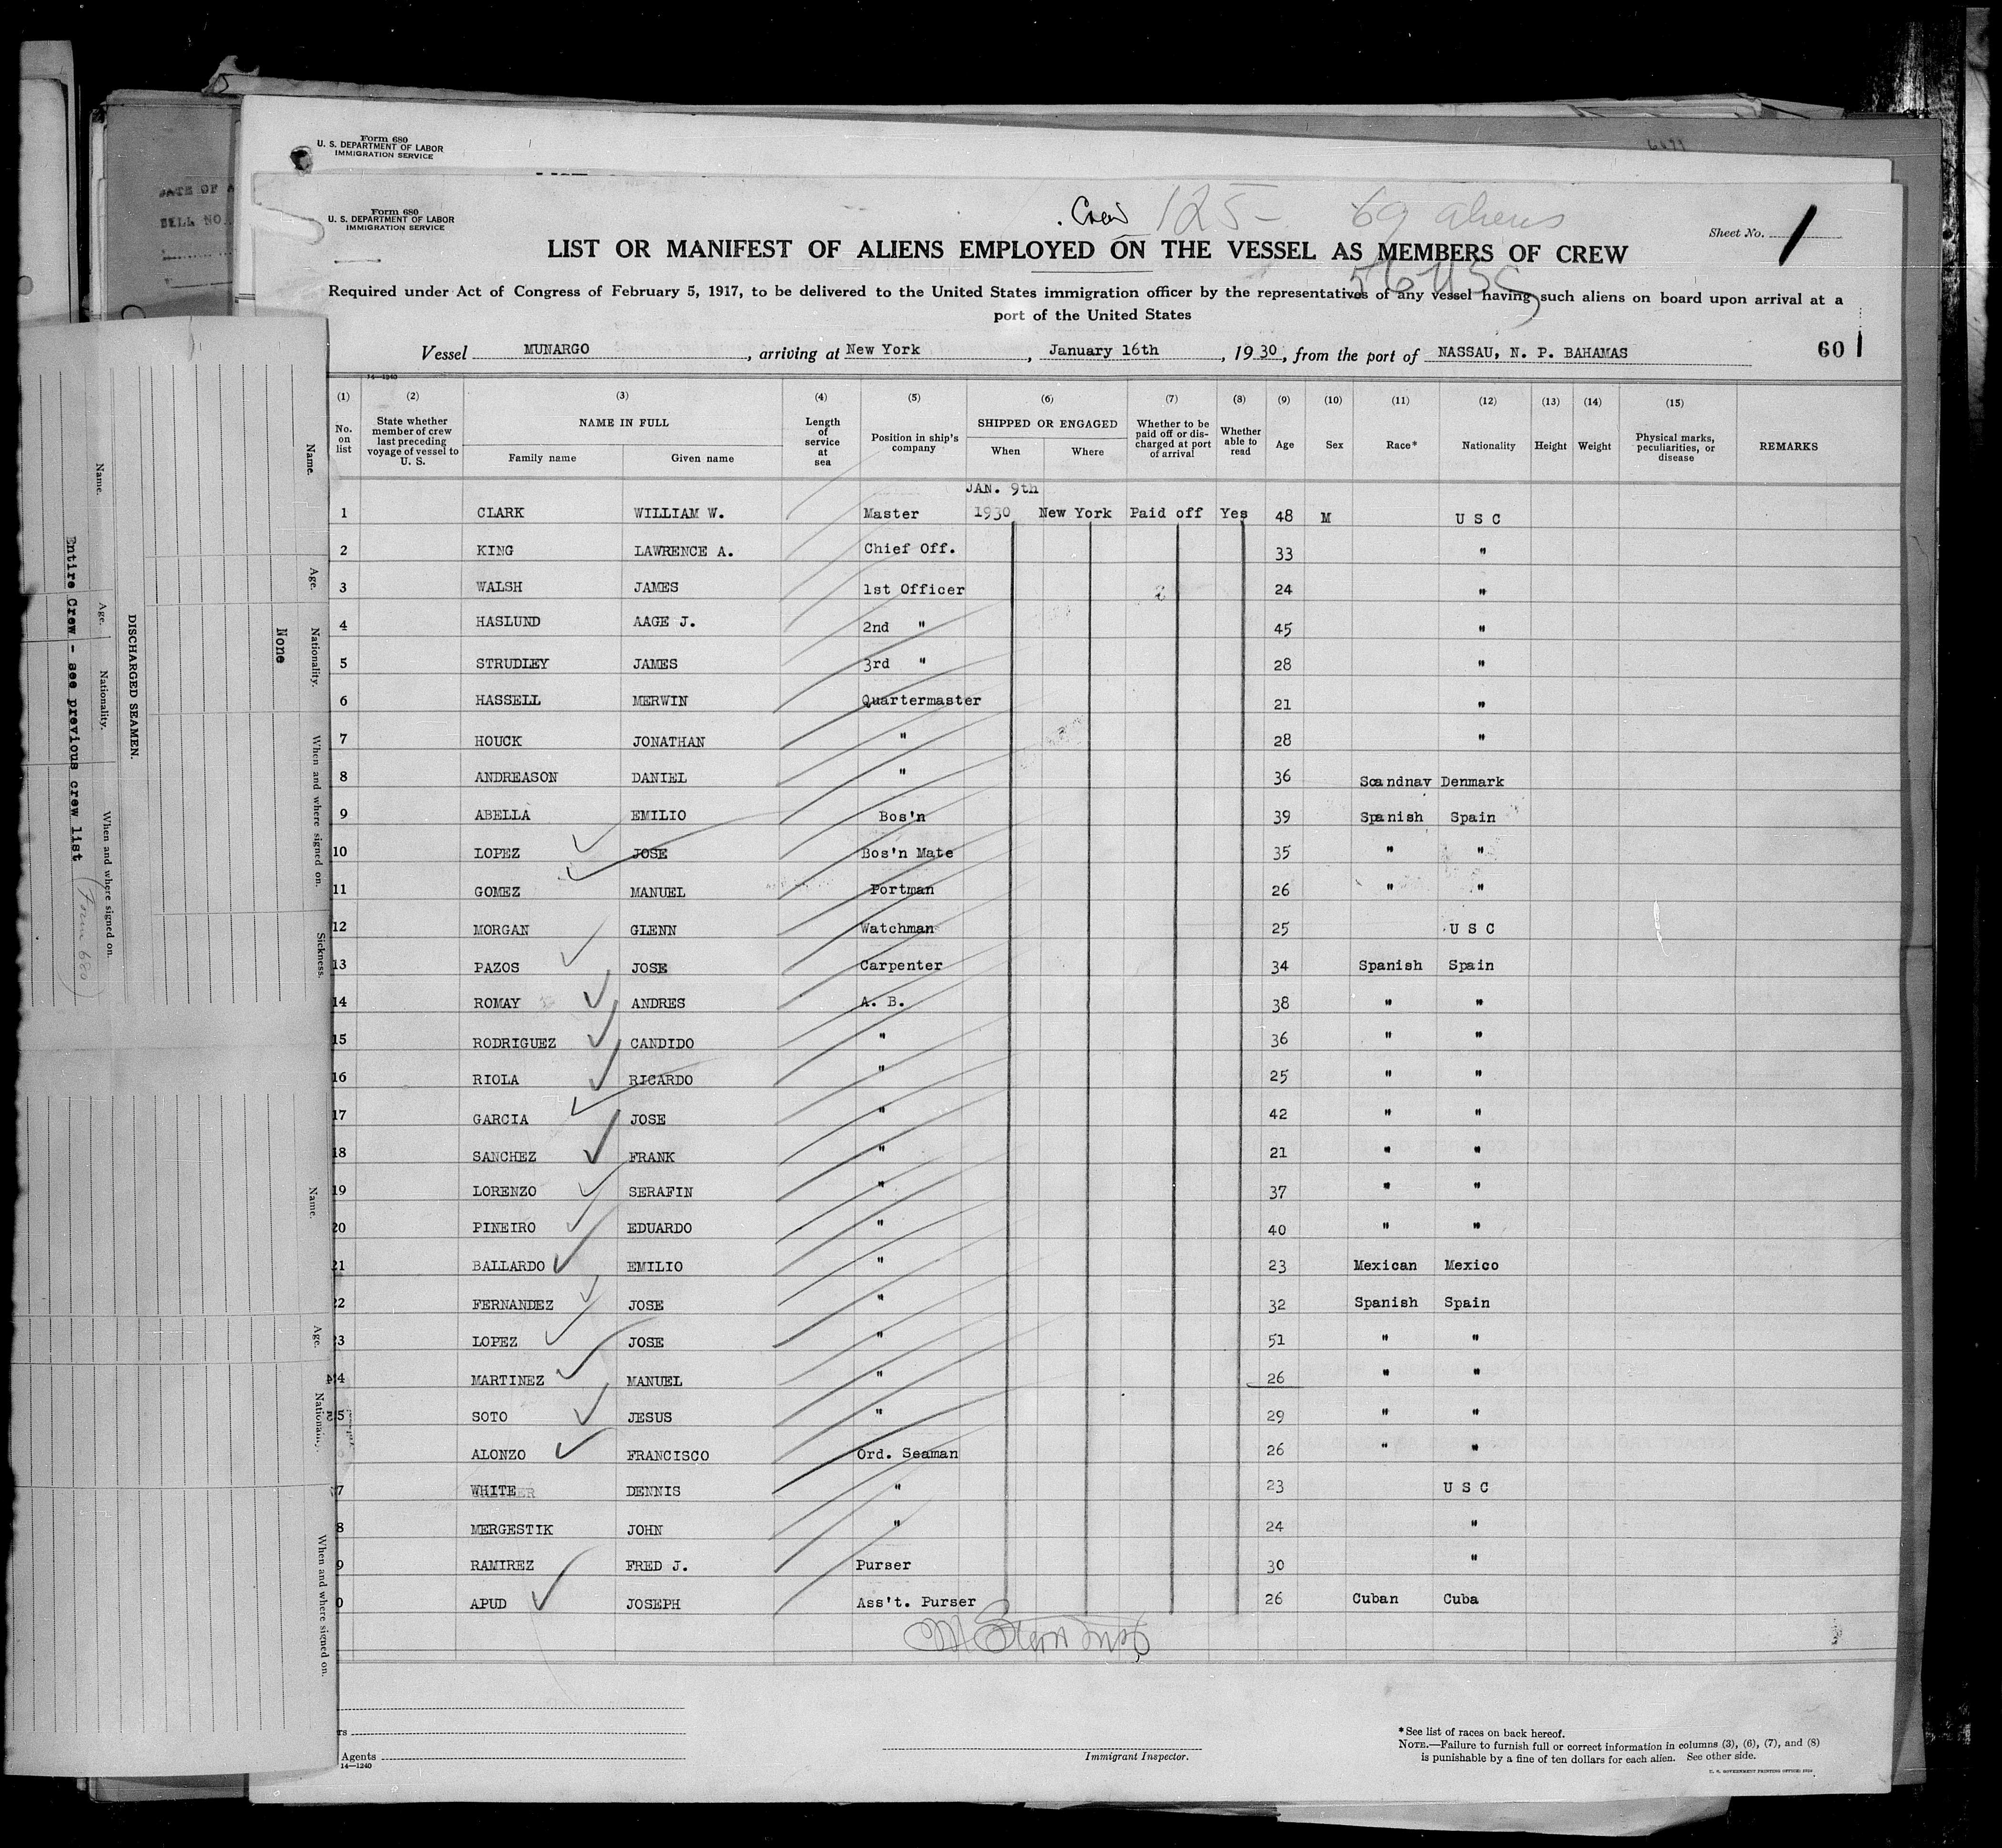 Form 680
U. S. DEPARTMENT OF LABOR
IMMIGRATION SERVICE
Form 680
U. S. DEPARTMENT OF LABOR
IMMIGRATION SERVICE
Crew 125- 69 aliens
56 USC
Sheet No. 1
LIST OR MANIFEST OF ALIENS EMPLOYED ON THE VESSEL AS MEMBERS OF CREW
Required under Act of Congress of February 5, 1917, to be delivered to the United States immigration officer by the representatives of any vessel having such aliens on board upon arrival at a
port of the United States
Vessel MUNARGO, arriving at New York, January 16th, 1930, from the port of NASSAU, N. P. BAHAMAS
60 1
14—1240
(1) (2) (3) (4) (5) (6) (7) (8) (9) (10) (11) (12) (13) (14) (15)
No. on list
State whether member of crew last preceding voyage of vessel to U. S.
NAME IN FULL
Family name Given name
Length of service at sea
Position in ship's company
SHIPPED OR ENGAGED
When Where
Whether to be paid off or discharged at port of arrival
Whether able to read
Age Sex Race* Nationality Height Weight
Physical marks, peculiarities, or disease
REMARKS
JAN. 9th
1 CLARK WILLIAM W. Master 1930 New York Paid off Yes 48 M U S C
2 KING LAWRENCE A. Chief Off. 33 "
3 WALSH JAMES 1st Officer 24 "
4 HASLUND AAGE J. 2nd " 45 "
5 STRUDLEY JAMES 3rd " 28 "
6 HASSELL MERWIN Quartermaster 21 "
7 HOUCK JONATHAN " 28 "
8 ANDREASON DANIEL " 36 Scandnav Denmark
9 ABELLA EMILIO Bos'n 39 Spanish Spain
10 LOPEZ JOSE Bos'n Mate 35 " "
11 GOMEZ MANUEL Portman 26 " "
12 MORGAN GLENN Watchman 25 U S C
13 PAZOS JOSE Carpenter 34 Spanish Spain
14 ROMAY ANDRES A. B. 38 " "
15 RODRIGUEZ CANDIDO " 36 " "
16 RIOLA RICARDO " 25 " "
17 GARCIA JOSE " 42 " "
18 SANCHEZ FRANK " 21 " "
19 LORENZO SERAFIN " 37 " "
20 PINEIRO EDUARDO " 40 " "
21 BALLARDO EMILIO " 23 Mexican Mexico
22 FERNANDEZ JOSE " 32 Spanish Spain
23 LOPEZ JOSE " 51 " "
24 MARTINEZ MANUEL " 26 " "
5 SOTO JESUS " 29 " "
ALONZO FRANCISCO Ord. Seaman 26 " "
7 WHITE DENNIS " 23 U S C
8 MERGESTIK JOHN " 24 "
9 RAMIREZ FRED J. Purser 30 "
0 APUD JOSEPH Ass't. Purser 26 Cuban Cuba
Agents
14—1240
Immigrant Inspector.
*See list of races on back hereof.
NOTE.—Failure to furnish full or correct information in columns (3), (6), (7), and (8)
is punishable by a fine of ten dollars for each alien. See other side.
U. S. GOVERNMENT PRINTING OFFICE
DATE OF
BELL NO.
Name. Age. Nationality. When and where signed on. Sickness.
None
DISCHARGED SEAMEN.
Name. Age. Nationality. When and where signed on.
Entire Crew - see previous crew list (Form 680)
Name. Age. Nationality. When and where signed on.